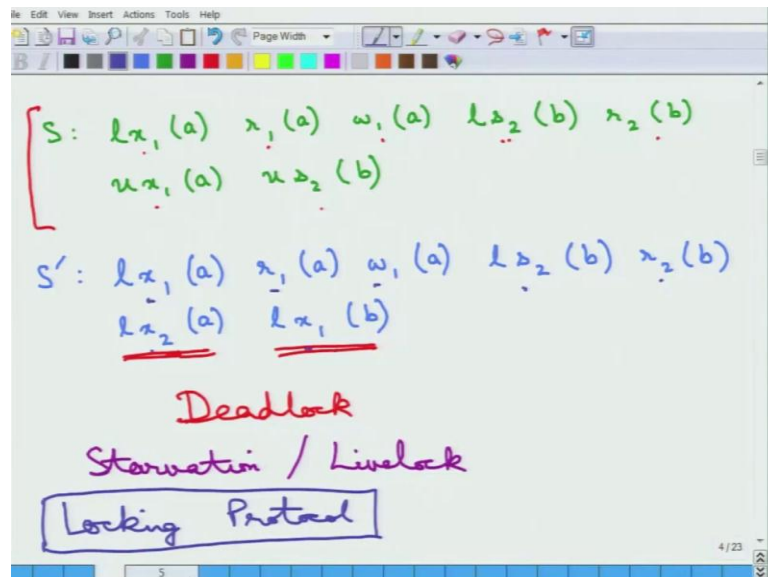 File Edit View Insert Actions Tools Help
Page Width
B I
S: lx₁(a) r₁(a) w₁(a) ls₂(b) r₂(b)
ux₁(a) us₂(b)
S′: lx₁(a) r₁(a) w₁(a) ls₂(b) r₂(b)
lx₂(a) lx₁(b)
Deadlock
Starvation / Livelock
Locking Protocol
4/23
5